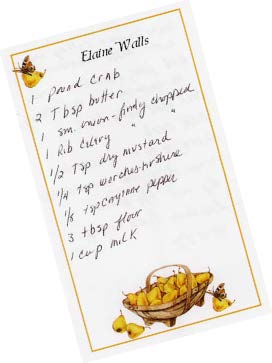 Elaine Walls
1 Pound Crab
2 Tbsp butter
1 sm. onion - finely chopped
1 Rib Celery " "
1/2 Tsp dry mustard
1/4 tsp worchestershire
1/8 tsp cayenne pepper
3 tbsp flour
1 cup milk